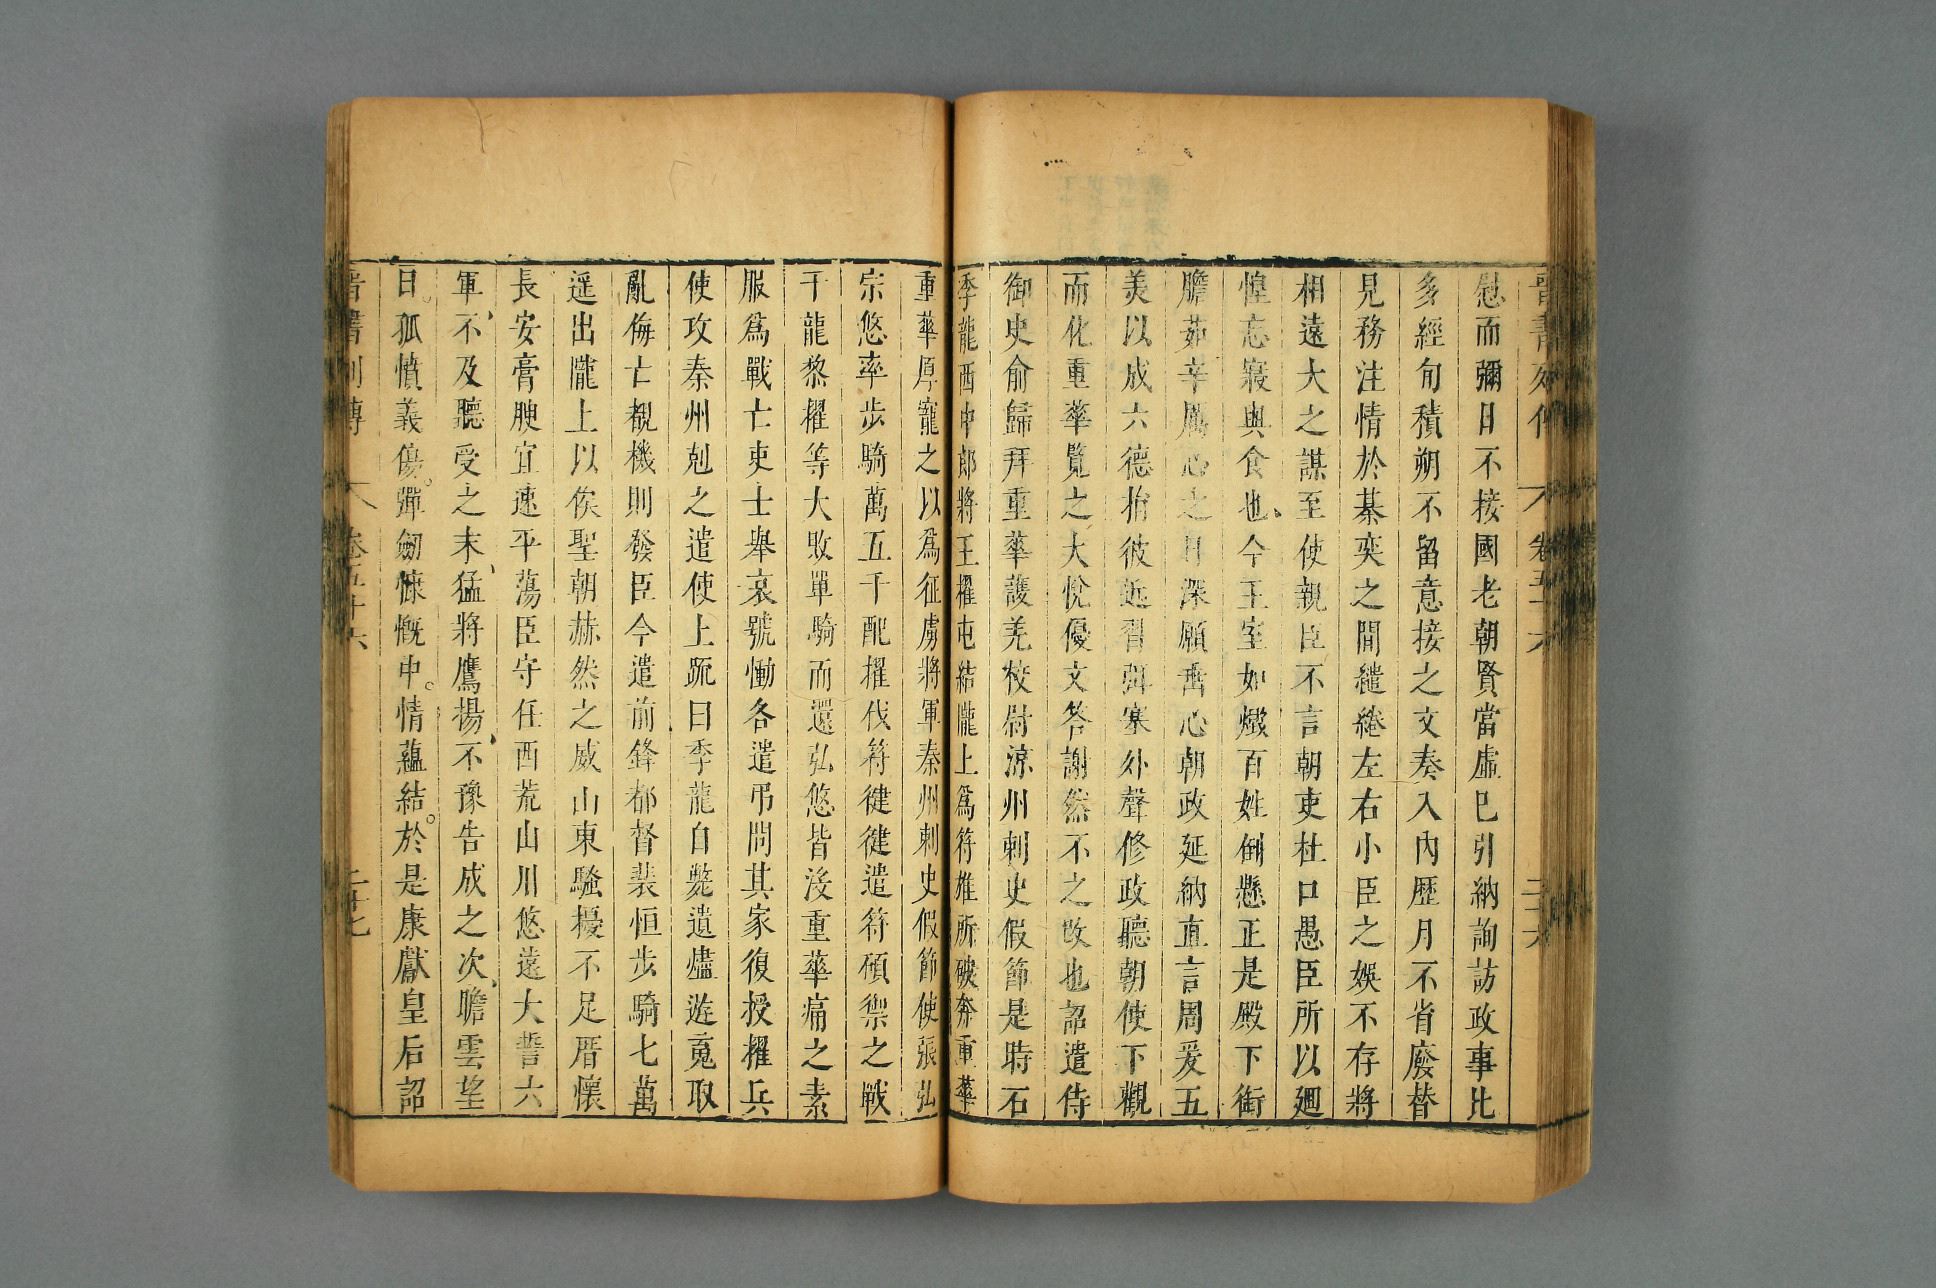 慰而彌日不接國老朝賢當虛己引納詢訪政事比
多經旬積朔不留意接之文奏入內歷月不省廢替
見務注情於棊奕之間繾綣左右小臣之娛不存將
相遠大之謀至使親臣不言朝吏杜口愚臣所以廻
惶忘寢與食也今王室如燬百姓倒懸正是殿下銜
膽茹辛厲心之日深願垂心朝政延納直言周爰五
美以成六德捐彼近習弭塞外聲修政聽朝使下觀
而化重華覽之大悅優文答謝然不之改也詔遣侍
御史俞歸拜重華護羌校尉涼州刺史假節是時石
季龍西中郎將王擢屯結隴上爲苻雄所破奔重華
重華厚寵之以爲征虜將軍秦州刺史假節使張弘
宗悠率步騎萬五千配擢伐苻健健遣苻碩禦之戰
于龍黎擢等大敗單騎而還弘悠皆沒重華痛之素
服爲戰亡吏士舉哀號慟各遣弔問其家復授擢兵
使攻秦州剋之遣使上䟽曰季龍自斃遺燼遊䰟取
亂侮亡覩機則發臣今遣前鋒都督裴恒步騎七萬
遥出隴上以俟聖朝赫然之威山東騷擾不足厝懷
長安膏腴宜速平蕩臣守任西荒山川悠遠大誓六
軍不及聽受之末猛將鷹揚不豫告成之次瞻雲望
日孤憤義傷彈劒慷慨中情蘊結於是康獻皇后詔
晉書列傳 卷五十六 二十七